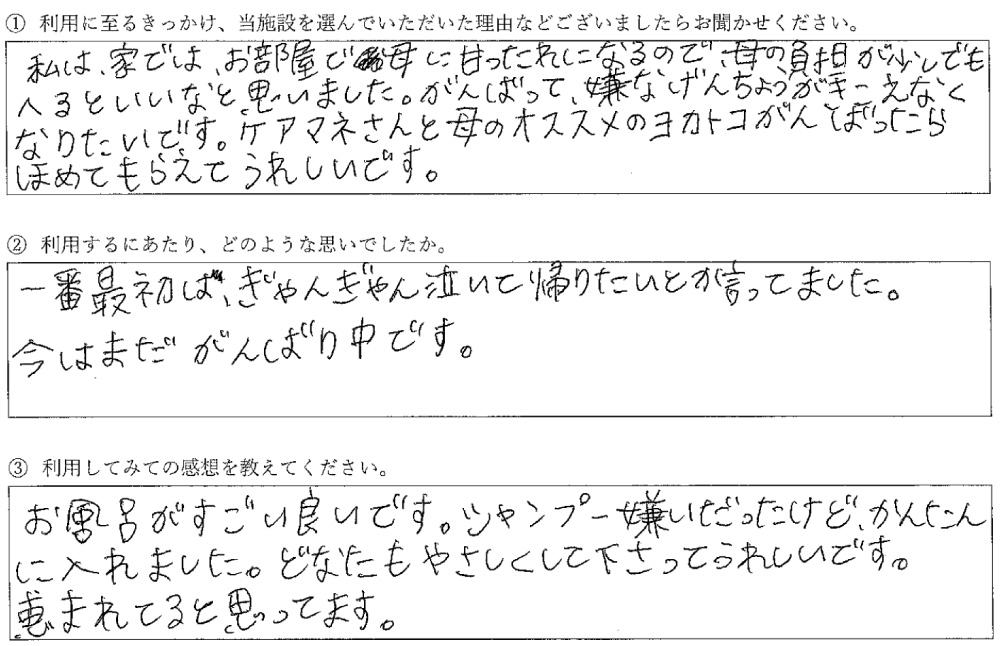 ① 利用に至るきっかけ、当施設を選んでいただいた理由などございましたらお聞かせください。
私は、家では、お部屋で母に甘ったれになるので、母の負担が少しでも
へるといいなと思いました。がんばって、嫌なげんちょうがキこえなく
なりたいです。ケアマネさんと母のオススメのヨカトコがんばったら
ほめてもらえてうれしいです。
② 利用するにあたり、どのような思いでしたか。
一番最初は、ぎゃんぎゃん泣いて帰りたいとか言ってました。
今はまだがんばり中です。
③ 利用してみての感想を教えてください。
お風呂がすごい良いです。シャンプー嫌いだったけど、かんたん
に入れました。どなたもやさしくして下さってうれしいです。
恵まれてると思ってます。